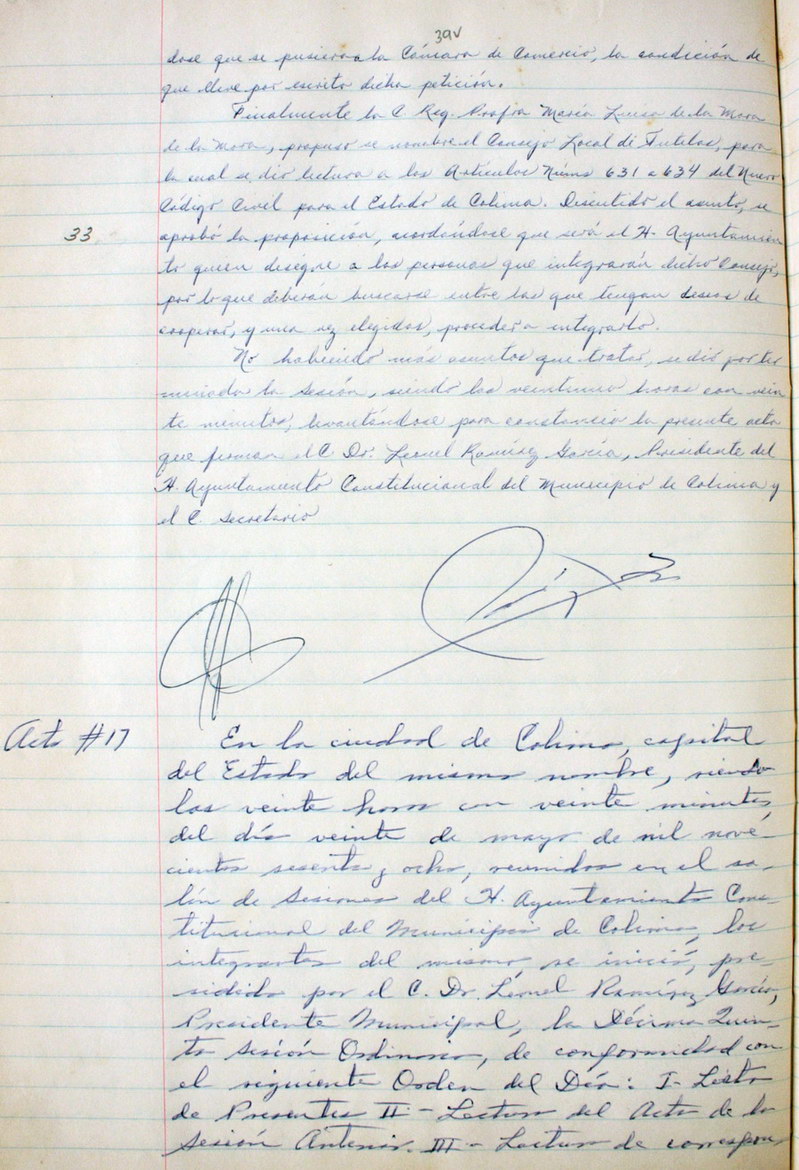 39v
dose que se pusiera a la Cámara de Comercio, la condición de
que lleve por escrito dicha petición.
Finalmente la C Reg. Profra María Luisa de la Mora
de la Mora, propuso se nombre el Consejo Local de Tutelas, para
lo cual se dió lectura a los Artículos Núms 631 a 634 del Nuevo
Código Civil para el Estado de Colima. Discutido el asunto, se
33 aprobó la proposición, acordándose que será el H. Ayuntamien
to quien designe a las personas que integrarán dicho Consejo,
por lo que deberán buscarse entre las que tengan deseos de
cooperar, y una vez elegidos, proceder a integrarlo.
No habiendo más asuntos que tratar, se dió por ter
minada la Sesión, siendo las veintiuna horas con vein
te minutos, levantándose para constancia la presente acta
que firman el C. Dr. Leonel Ramírez García, Presidente del
H. Ayuntamiento Constitucional del Municipio de Colima y
el C. Secretario
Acta #17 En la ciudad de Colima, capital
del Estado del mismo nombre, siendo
las veinte horas con veinte minutos,
del día veinte de mayo de mil nove-
cientos sesenta y ocho, reunidos en el sa-
lón de Sesiones del H. Ayuntamiento Cons-
titucional del Municipio de Colima, los
integrantes del mismo, se inició, pre-
sidida por el C. Dr. Leonel Ramírez García,
Presidente Municipal, la Décima Quin-
ta Sesión Ordinaria, de conformidad con
el siguiente Orden del Día: I- Lista
de Presentes II - Lectura del Acta de la
Sesión Anterior. III - Lectura de correspon